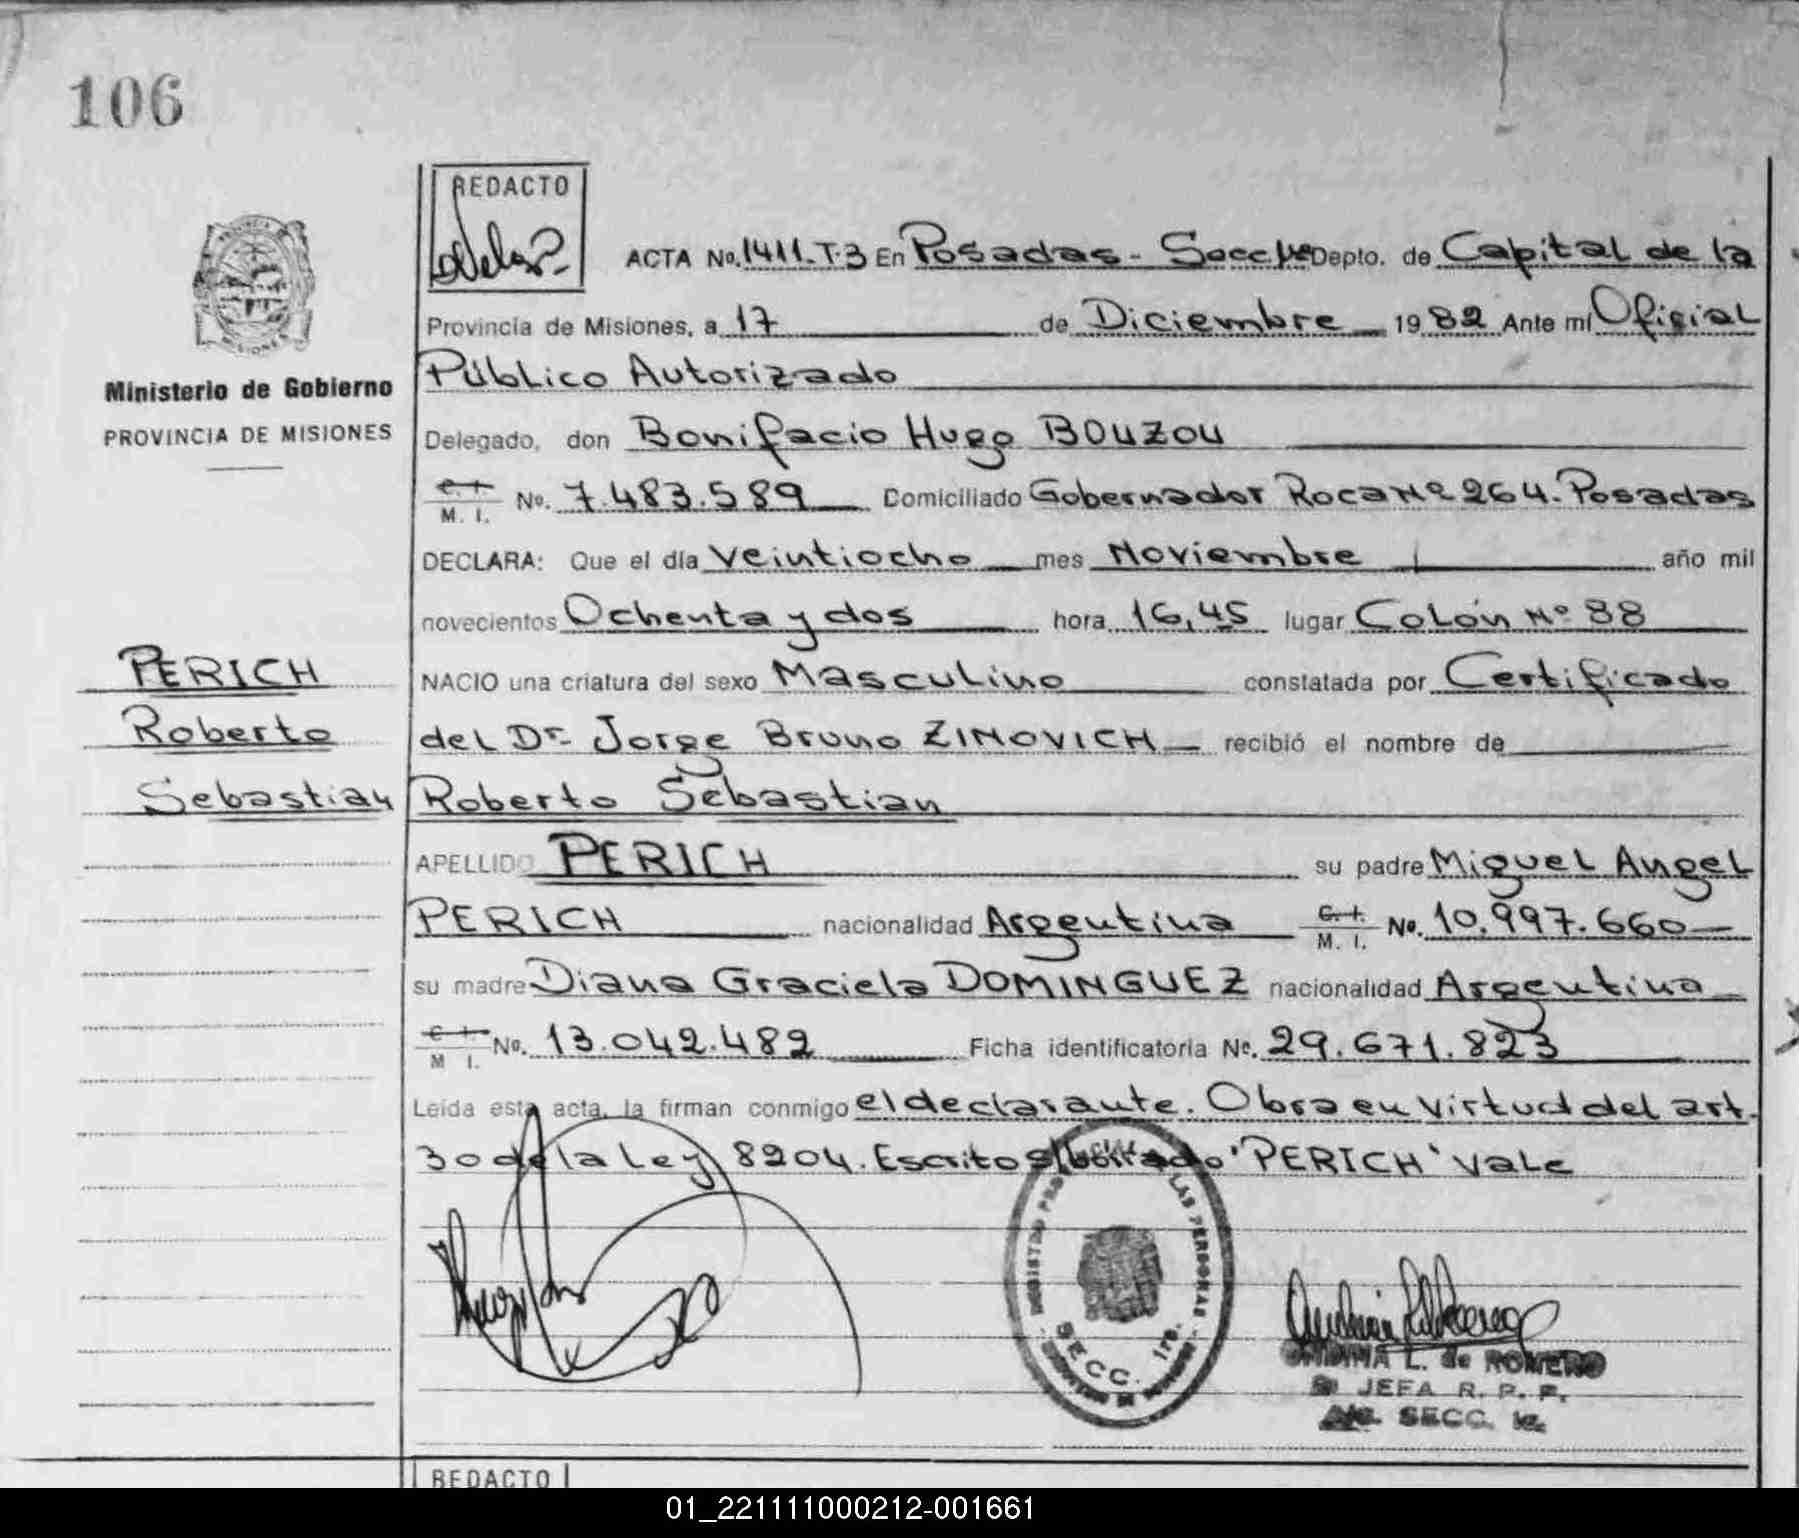 106
REDACTO
ACTA No. 1411.T.3 En Posadas - Secc 1ra Depto. de Capital de la
Provincia de Misiones, a 17 de Diciembre 1982 Ante mi Oficial
Público Autorizado
Ministerio de Gobierno
PROVINCIA DE MISIONES
Delegado, don Bonifacio Hugo BOUZOU
C. I.
M. I. No. 7.483.589 Domiciliado Gobernador Roca Nº 264. Posadas
DECLARA: Que el día Veintiocho mes Noviembre año mil
novecientos Ochenta y dos hora 16,45 lugar Colón Nº 88
NACIO una criatura del sexo Masculino constatada por Certificado
del Dr Jorge Bruno ZINOVICH recibió el nombre de
Roberto Sebastian
PERICH
Roberto
Sebastian
APELLIDO PERICH su padre Miguel Angel
PERICH nacionalidad Argentina C. I. M. I. No. 10.997.660
su madre Diana Graciela DOMINGUEZ nacionalidad Argentina
C. I.
M. I. No. 13.042.482 Ficha identificatoria No. 29.671.823
Leída esta acta, la firman conmigo el declarante. Obra en virtud del art.
30 de la Ley 8204. Escrito s/borrado 'PERICH' Vale
LAS PERSONAS
SECC. 1ra.
L. de ROMERO
JEFA R. P. P.
SECC. 1a.
REDACTO
01_221111000212-001661